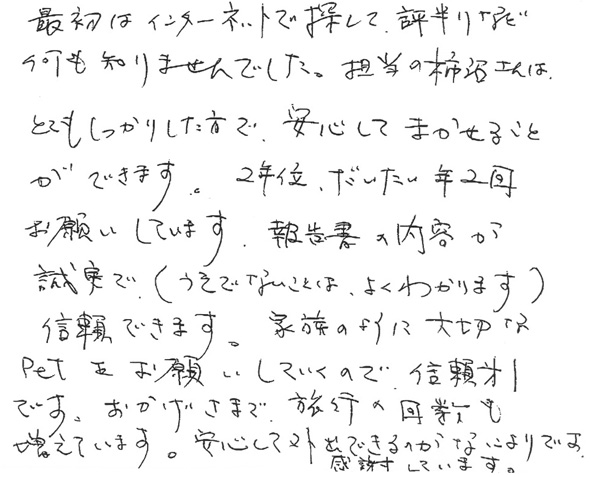 最初はインターネットで探して、評判など
何も知りませんでした。担当の柿沼さんは、
とてもしっかりした方で、安心してまかせること
ができます。2年位、だいたい年2回
お願いしています。報告書の内容が
誠実で、(うそでないことは、よくわかります)
信頼できます。家族のように大切な
Petをお願いしていくので、信頼第1
です。おかげさまで、旅行の回数も
増えています。安心して外出できるのがなによりです。
感謝しています。